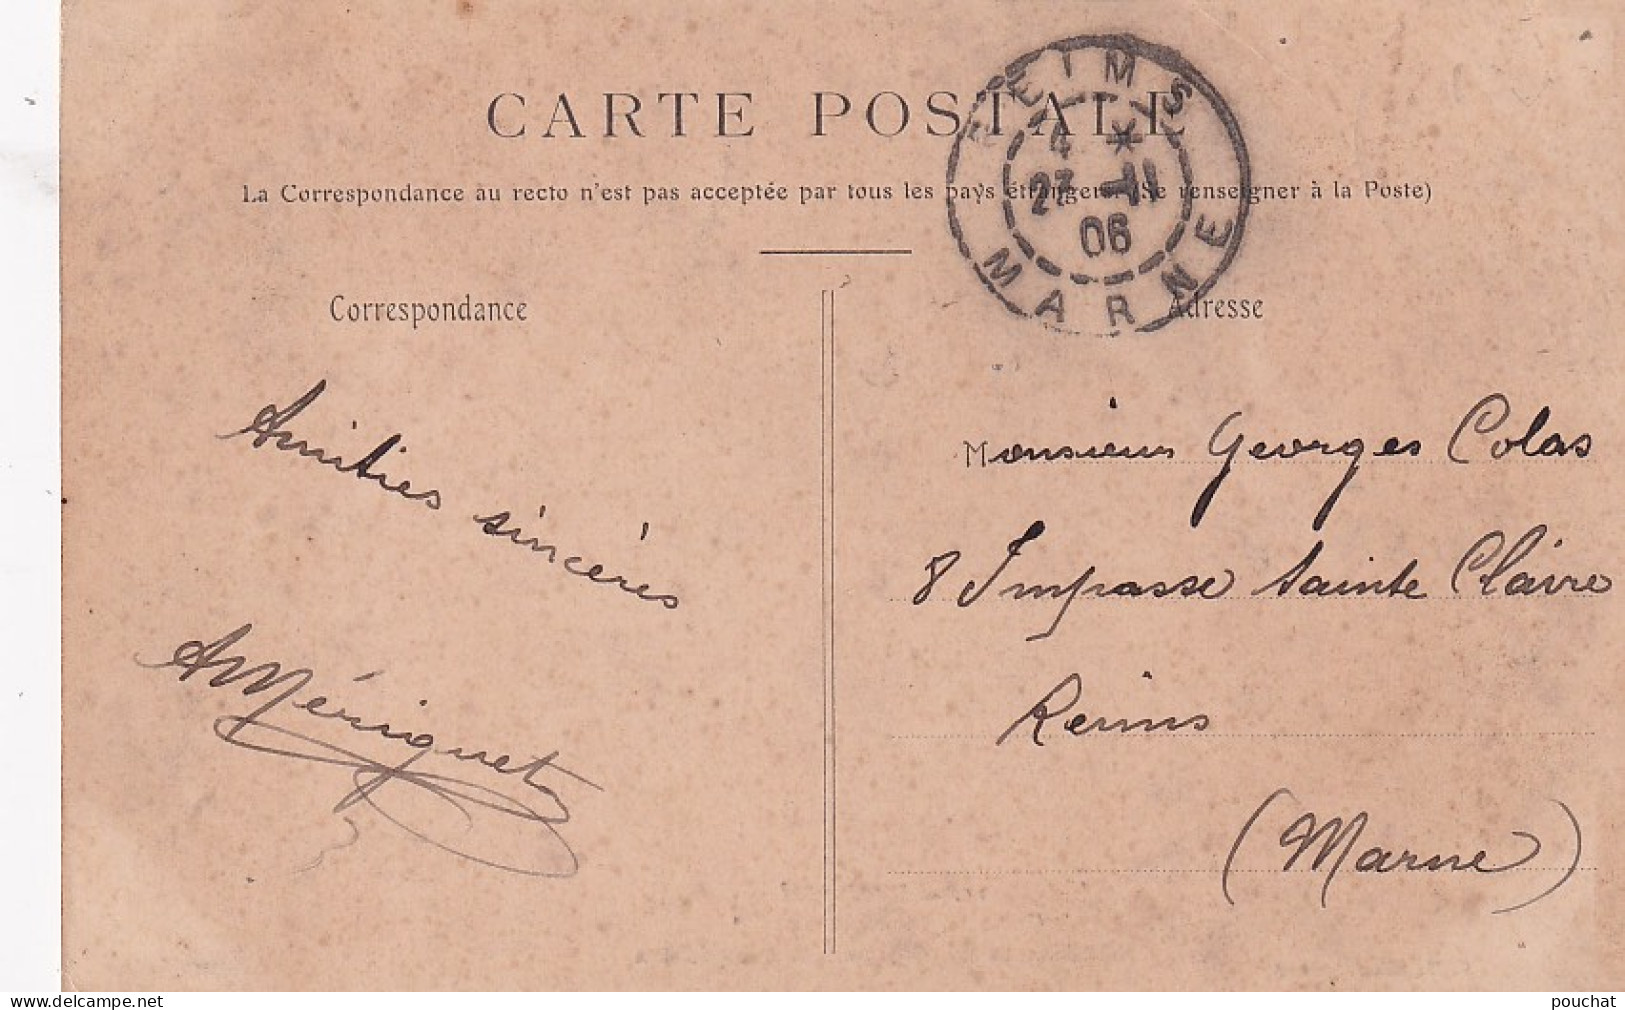 CARTE POSTALE
La Correspondance au recto n'est pas acceptée par tous les pays étrangers. (Se renseigner à la Poste)
REIMS
4 *
23 11
06
MARNE
Correspondance
Amitiés sincères
AMériguet
Adresse
Monsieur Georges Colas
8 Impasse Sainte Claire
Reims
(Marne)
© delcampe.net
pouchat